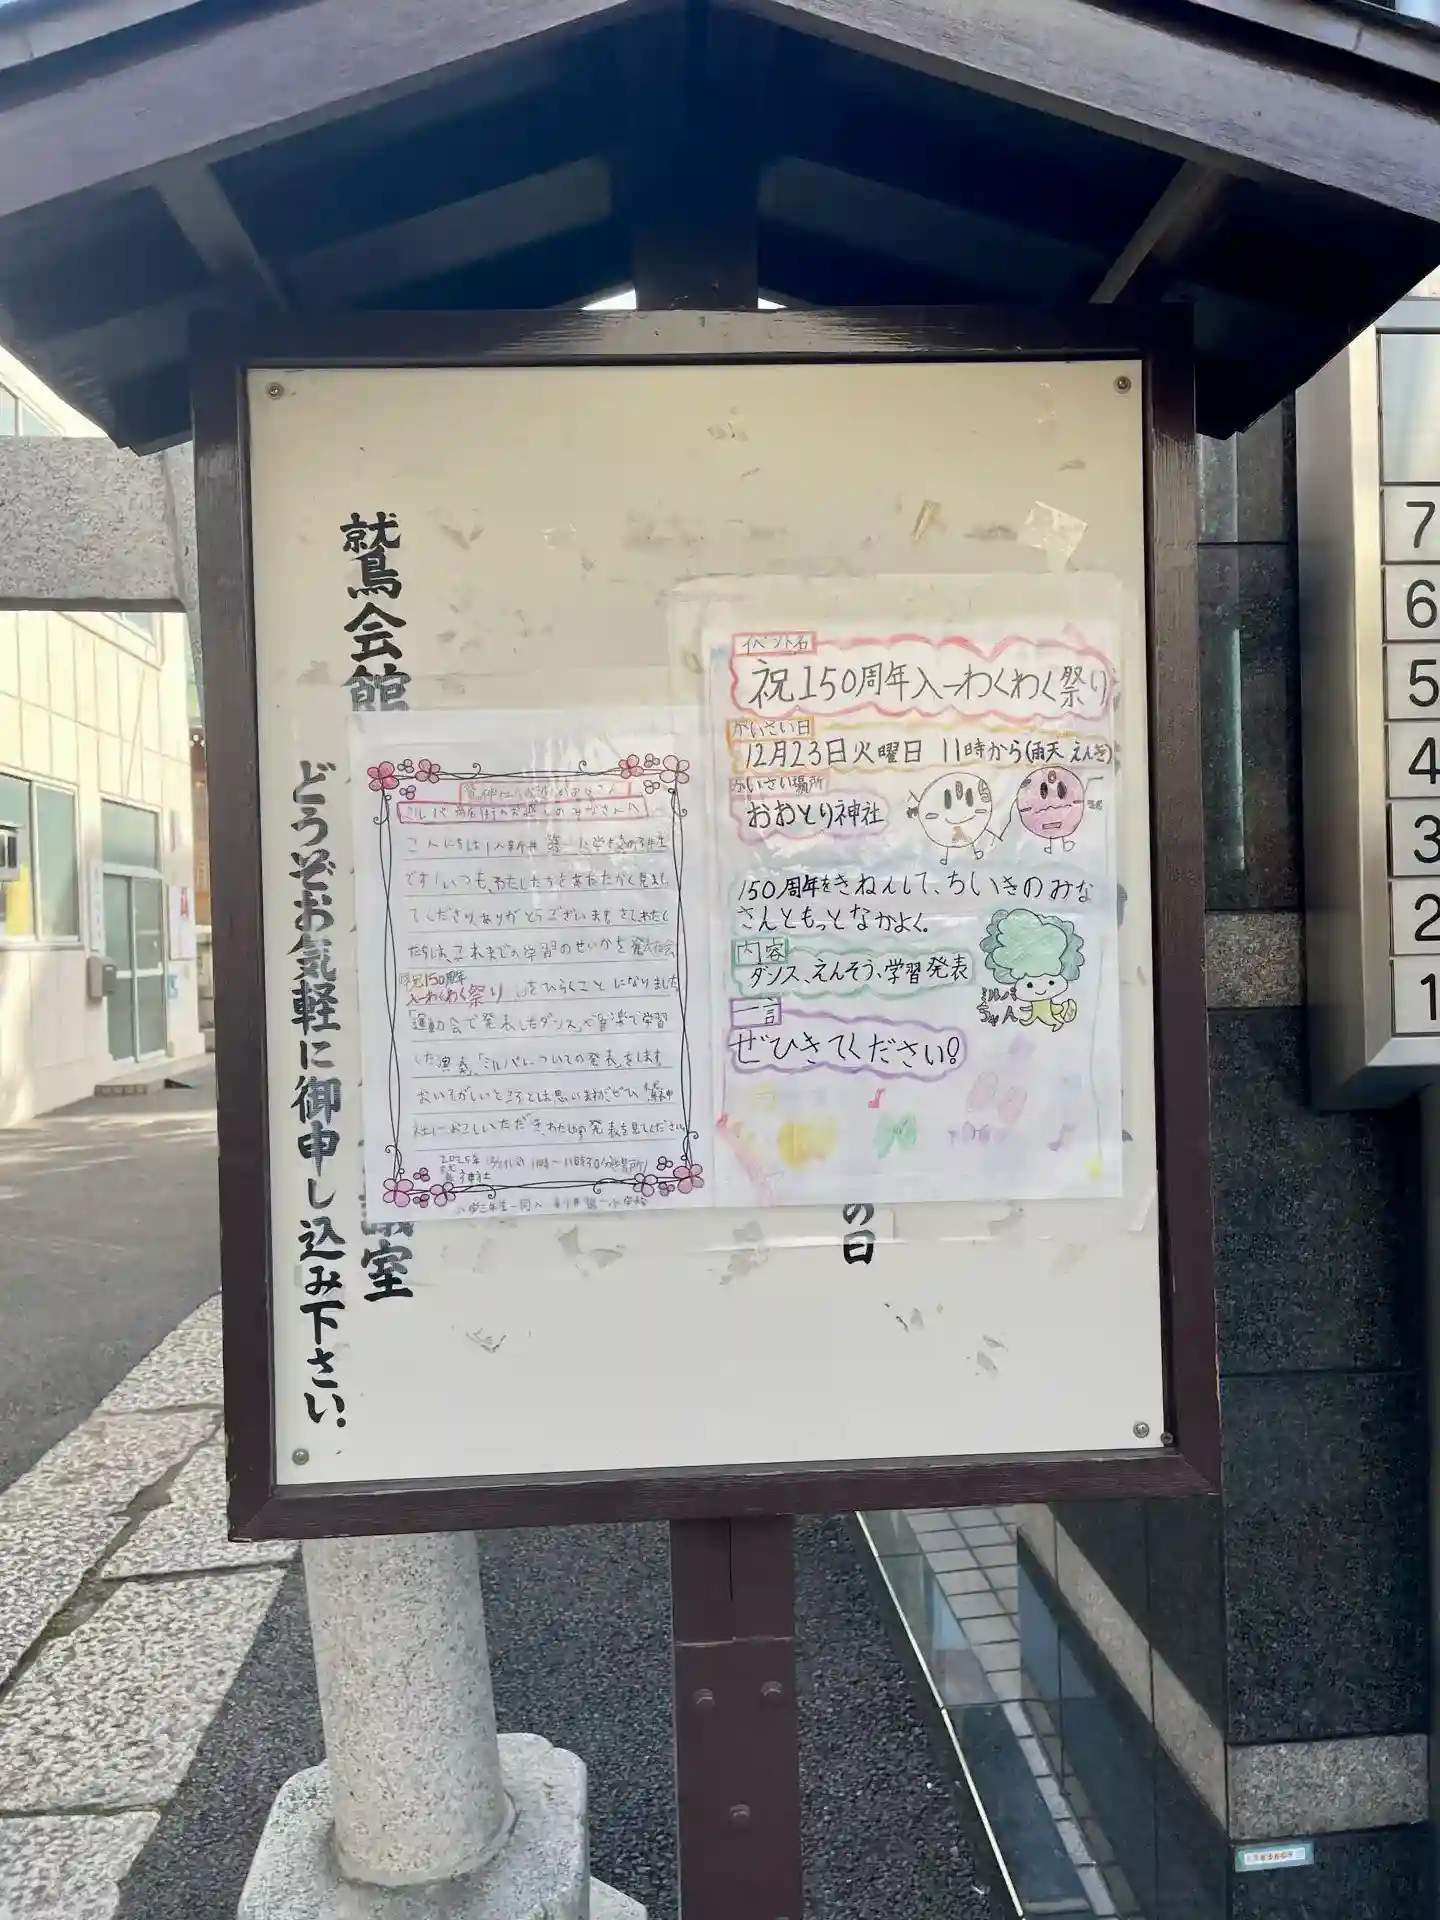 鷲会館
室
どうぞお気軽に御申し込み下さい.
の日
ミルパ商店街のお越しのみなさんへ
こんにちは!入新井第一小学校の3年生
です!いつも、わたしたちをあたたかく見まもっ
てくださりありがとうございます。さて、わたし
たちは、これまでの学習のせいかを発表する会
祝150周年
入一わくわく祭り をひらくことになりました
「運動会で発表したダンス」や「音楽で学習
した演奏」「ミルパについての発表」をします
おいそがしいところとは思いますが、ぜひ鷲神
社におこしいただき、わたしたちの発表を見てください
2025年 11時〜11時30分(場所)
鷲神社
イベント名
祝150周年入一わくわく祭り
かいさい日
12月23日火曜日 11時から(雨天 えんき)
かいさい場所
おおとり神社
150周年をきねんして、ちいきのみな
さんともっとなかよく。
内容
ダンス、えんそう、学習発表
ミルパ
ちゃん
一言
ぜひきてください!
7
6
5
4
3
2
1